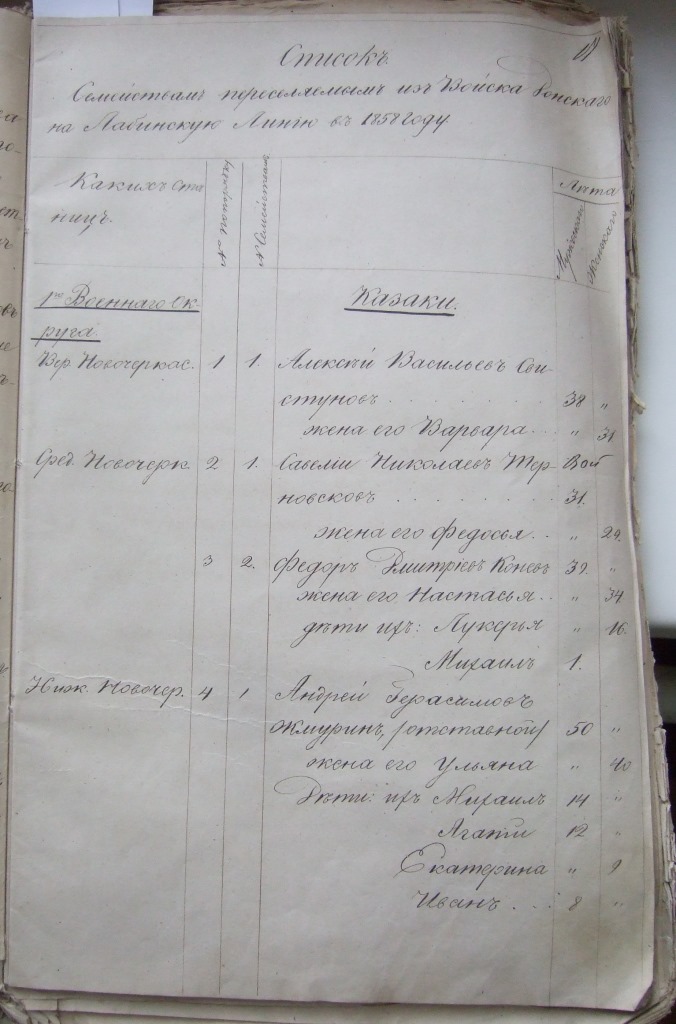 Списокъ
Семействамъ переселяемымъ изъ Войска Донскаго
на Лабинскую Линію въ 1858 году
Какихъ ста
ницъ.
№ попорядку
№ Семействъ
Лѣта
Мужескаго
Женскаго
1го Военнаго Ок-
руга.
Казаки.
Вер. Новочеркас. 1 1. Алексѣй Васильевъ Сви-
стуновъ . . . . . . . . 38 „
жена его Варвара . . . „ 31
Сред. Новочерк. 2 1. Савелій Николаевъ Тер- Вой
новсковъ . . . . . . . . 31.
жена его Федосья . . „ 29.
3 2. Федоръ Дмитріевъ Коневъ 39. „
жена его Настасья . . „ 34
дѣти ихъ: Лукерья „ 16.
Михаилъ 1.
Ниж. Новочер. 4 1 Андрей Герасимовъ
Жмуринъ, /отставной/ 50 „
жена его Ульяна „ 40
Дѣти: ихъ Михаилъ 14 „
Агапій 12 „
Екатерина „ 9
Иванъ . . . 8 „